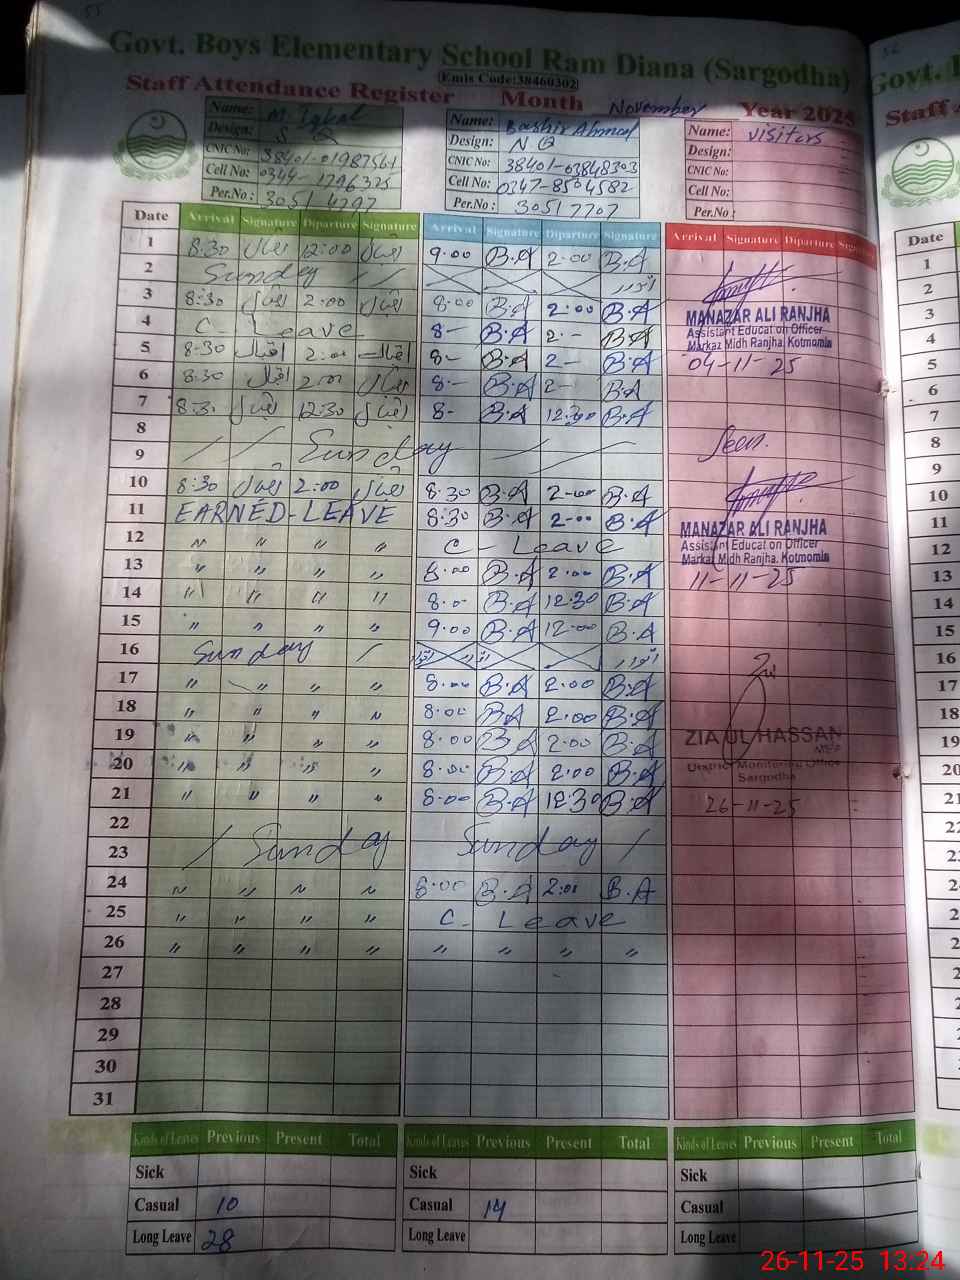 55
Govt. Boys Elementary School Ram Diana (Sargodha)
Emis Code:38460302
Staff Attendance Register Month November Year 2025
Name: M. Iqbal
Design: S Q
CNIC No: 38401-0198756-1
Cell No: 0344-1796325
Per.No: 3051 4797
Name: Bashir Ahmad
Design: N Q
CNIC No: 38401-03848303
Cell No: 0347-8504582
Per.No: 3051 7707
Name: visitors
Design:
CNIC No:
Cell No:
Per.No:
Date Arrival Signature Diparture Signature Arrival Signature Diparture Signature Arrival Signature Diparture
1 8:30 اقبال 12:00 اقبال 9.00 B.A 2.00 B.A
2 Sunday اتوار
3 8:30 اقبال 2:00 اقبال 8.00 B.A 2.00 B.A
4 C- Leave 8- B.A 2.- B.A
5 8:30 اقبال 2:00 اقبال 8- B.A 2- B.A
6 8:30 اقبال 2:00 اقبال 8- B.A 2- B.A
7 8:30 اقبال 12:30 اقبال 8- B.A 12.30 B.A
8
9 Sunday
10 8:30 اقبال 2:00 اقبال 8.30 B.A 2-00 B.A
11 EARNED-LEAVE 8:30 B.A 2-00 B.A
12 " " " " C- Leave
13 " " " " 8.00 B.A 2.00 B.A
14 " " " " 8.00 B.A 12.30 B.A
15 " " " " 9.00 B.A 12-00 B.A
16 Sunday اتوار اتوار
17 " " " " 8.00 B.A 2.00 B.A
18 " " " " 8.00 B.A 2.00 B.A
19 " " " " 8.00 B.A 2.00 B.A
20 " " " " 8.00 B.A 2.00 B.A
21 " " " " 8.00 B.A 12.30 B.A
22
23 Sunday Sunday
24 " " " " 8.00 B.A 2.00 B.A
25 " " " " C- Leave
26 " " " " " " " "
27
28
29
30
31
MANAZAR ALI RANJHA
Assistant Education Officer
Markaz Midh Ranjha, Kotmomin
04-11-25
Seen.
MANAZAR ALI RANJHA
Assistant Education Officer
Markaz Midh Ranjha, Kotmomin
11-11-25
ZIA UL HASSAN
District Monitoring Officer
Sargodha
26-11-25
Kinds of Leaves Previous Present Total Kinds of Leaves Previous Present Total Kinds of Leaves Previous Present Total
Sick Sick Sick
Casual 10 Casual 14 Casual
Long Leave 28 Long Leave Long Leave
56
Govt.
Date
1
2
3
4
5
6
7
8
9
10
11
12
13
14
15
16
17
18
19
20
21
22
26-11-25 13:24